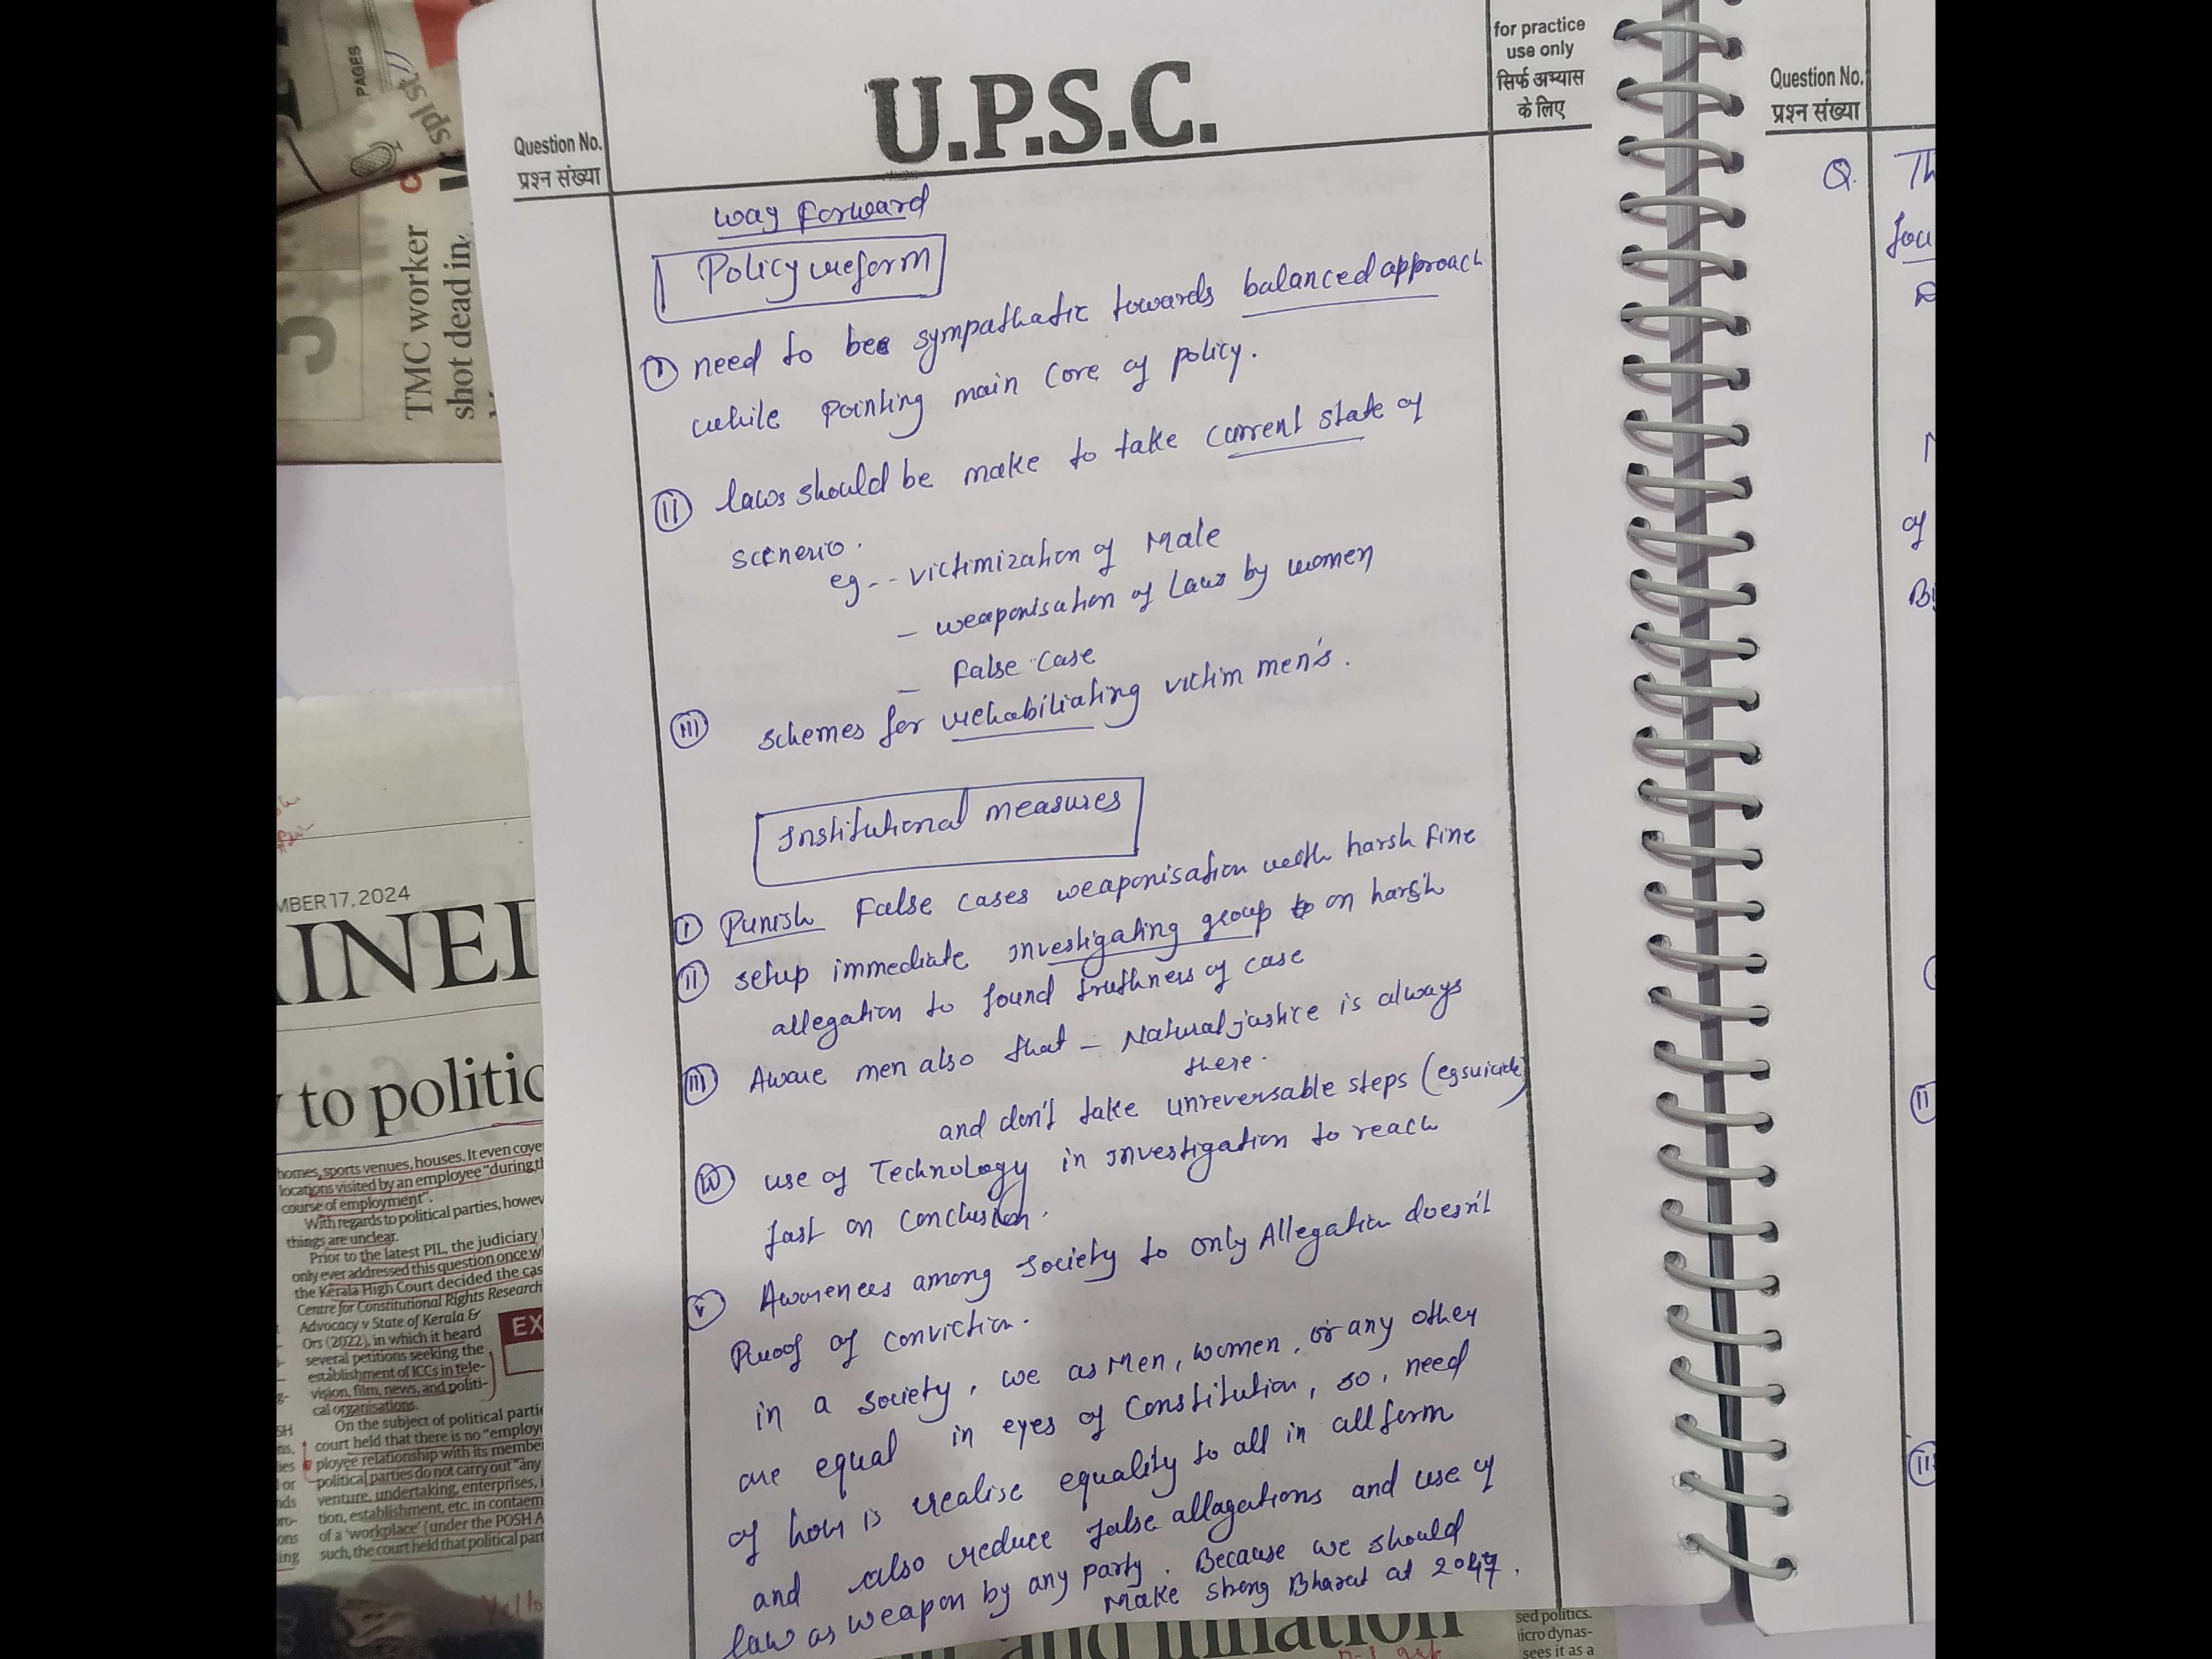 PAGES
spl st
TMC worker
shot dead in
3
U.P.S.C.
for practice
use only
सिर्फ अभ्यास
के लिए
Question No.
प्रश्न संख्या
way forward
Policy reform
I need to be sympathatic towards balanced approach
while pointing main core of policy.
II laws should be make to take current state of
scenerio.
eg - - victimization of Male
- weaponisation of Laws by women
- False Case
III schemes for rehabiliating victim men's.
Institutional measures
I Punish False cases weaponisation with harsh fine
II setup immediate investigating group on harsh
allegation to found truthness of case
III Aware men also that - Natural justice is always
there.
and don't take unreversable steps (eg suicide)
IV use of Technology in investigation to reach
fast on conclusion.
V Awareness among society to only Allegation doesn't
Proof of conviction.
in a society, we as Men, women, or any other
are equal in eyes of Constitution, so, need
of hour is realise equality to all in all form
and also reduce false allagations and use of
law as weapon by any party. Because we should
Make strong Bharat at 2047.
Question No.
प्रश्न संख्या
Q. Th
fou
of
II
MBER 17, 2024
AINED
to politic
homes, sports venues, houses. It even cove
locations visited by an employee "during th
course of employment".
With regards to political parties, howev
things are unclear.
Prior to the latest PIL, the judiciary
only ever addressed this question once w
the Kerala High Court decided the cas
Centre for Constitutional Rights Research
Advocacy v State of Kerala &
Ors (2022), in which it heard
several petitions seeking the
establishment of ICCs in tele-
vision, film, news, and politi-
cal organisations.
EX
On the subject of political partie
court held that there is no "employe
ployee relationship with its membe
political parties do not carry out "any
venture, undertaking, enterprises, i
tion, establishment, etc. in contaem
of a 'workplace' (under the POSH A
such, the court held that political part
Yello
and inflation
sed politics.
icro dynas-
sees it as a